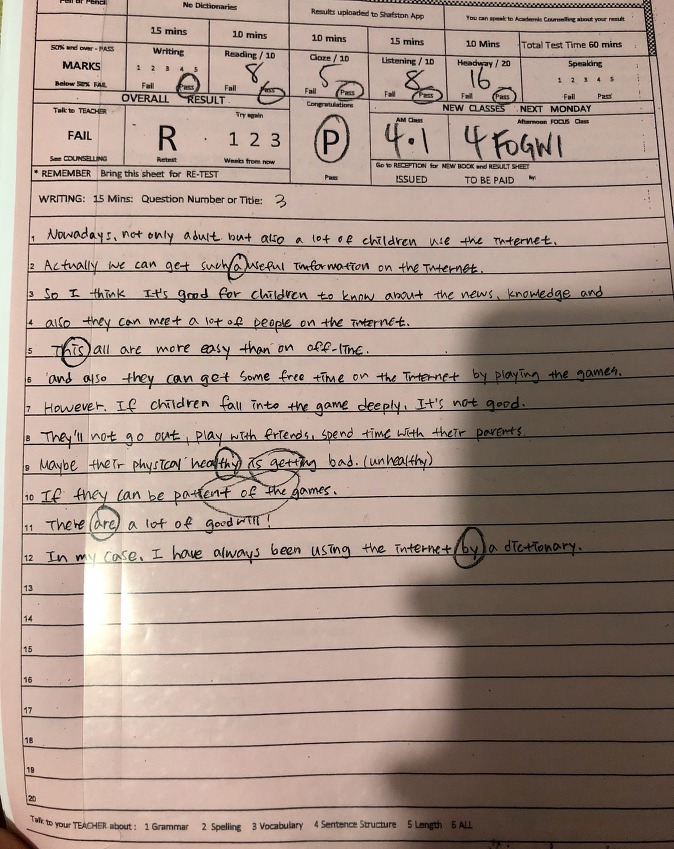 Pen or Pencil No Dictionaries Results uploaded to Shafston App You can speak to Academic Counselling about your result
15 mins 10 mins 10 mins 15 mins 10 Mins Total Test Time 60 mins
50% and over - PASS Writing Reading / 10 Cloze / 10 Listening / 10 Headway / 20 Speaking
MARKS 1 2 3 4 5 8 5 8 16 1 2 3 4 5
Below 50% FAIL Fail Pass Fail Pass Fail Pass Fail Pass Fail Pass Fail Pass
OVERALL RESULT Congratulations NEW CLASSES NEXT MONDAY
Talk to TEACHER Try again AM Class Afternoon FOCUS Class
FAIL R 1 2 3 P 4.1 4 FOGW1
See COUNSELLING Retest Weeks from now Pass Go to RECEPTION for NEW BOOK and RESULT SHEET
* REMEMBER Bring this sheet for RE-TEST ISSUED TO BE PAID By:
WRITING: 15 Mins: Question Number or Title: 3
1 Nowadays, not only adult but also a lot of children use the internet.
2 Actually we can get such a useful imformation on the internet.
3 So I think It's good for children to know about the news, knowledge and
4 also they can meet a lot of people on the internet.
5 This all are more easy than on off-line.
6 and also they can get some free time on the internet by playing the games.
7 However, If children fall into the game deeply, It's not good.
8 They'll not go out, play with friends, spend time with their parents.
9 Maybe their physical healthy is getting bad. (unhealthy)
10 If they can be patient of the games.
11 There are a lot of goodwill!
12 In my case, I have always been using the internet by a dictionary.
13
14
15
16
17
18
19
20
Talk to your TEACHER about: 1 Grammar 2 Spelling 3 Vocabulary 4 Sentence Structure 5 Length 6 ALL